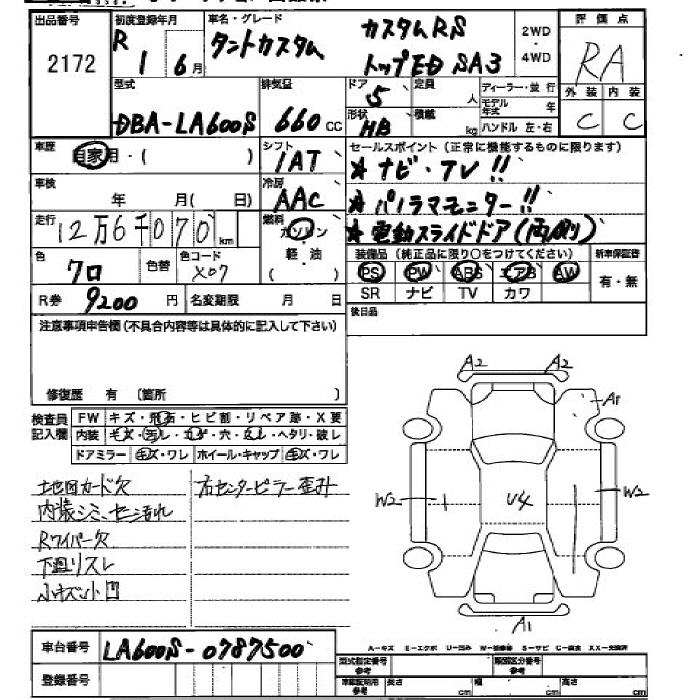 出品番号 初度登録年月 車名・グレード 評価点
2172 R 1 6月 タントカスタム カスタムRS 2WD・4WD RA
トップED SA3
型式 排気量 ドア 5 定員 人 ディーラー・並行 外装 内装
DBA-LA600S 660CC 形状 HB 積載 kg モデル年式 年 C C
ハンドル 左・右
車歴 自家用・( ) シフト 1AT セールスポイント(正常に機能するものに限ります)
★ナビ・TV!!
車検 年 月(日) 冷房 AAC ★パノラマモニター!!
走行 12万6千070km 燃料 ガソリン・軽油( ) ★電動スライドドア(両側)
色 クロ 色替 色コード X07 装備品(純正品に限り○をつけてください) 新車保証書
PS PW ABS エアB AW 有・無
R券 9200円 名変期限 月 日 SR ナビ TV カワ
注意事項申告欄(不具合内容等は具体的に記入して下さい) 後日品
修復歴 有 (箇所 )
検査員記入欄 FW キズ・飛石・ヒビ割・リペア跡・X要
内装 キズ・汚レ・コゲ・穴・スレ・ヘタリ・破レ
ドアミラー キズ・ワレ ホイール・キャップ キズ・ワレ
地図カード欠 右センターピラー歪み
内装シミ、
Rワイパー欠
下廻リスレ
小キズ凹
A2 A2
A1
W2 U4 W2
A1
車台番号 LA600S-0787500
登録番号
A-キズ E-エクボ U-凹み W-補修巻 S-サビ C-腐食 XX-交換済
型式指定番号 参考 類別区分番号 参考
車認証明用 参考 長さ cm 幅 cm 高さ cm